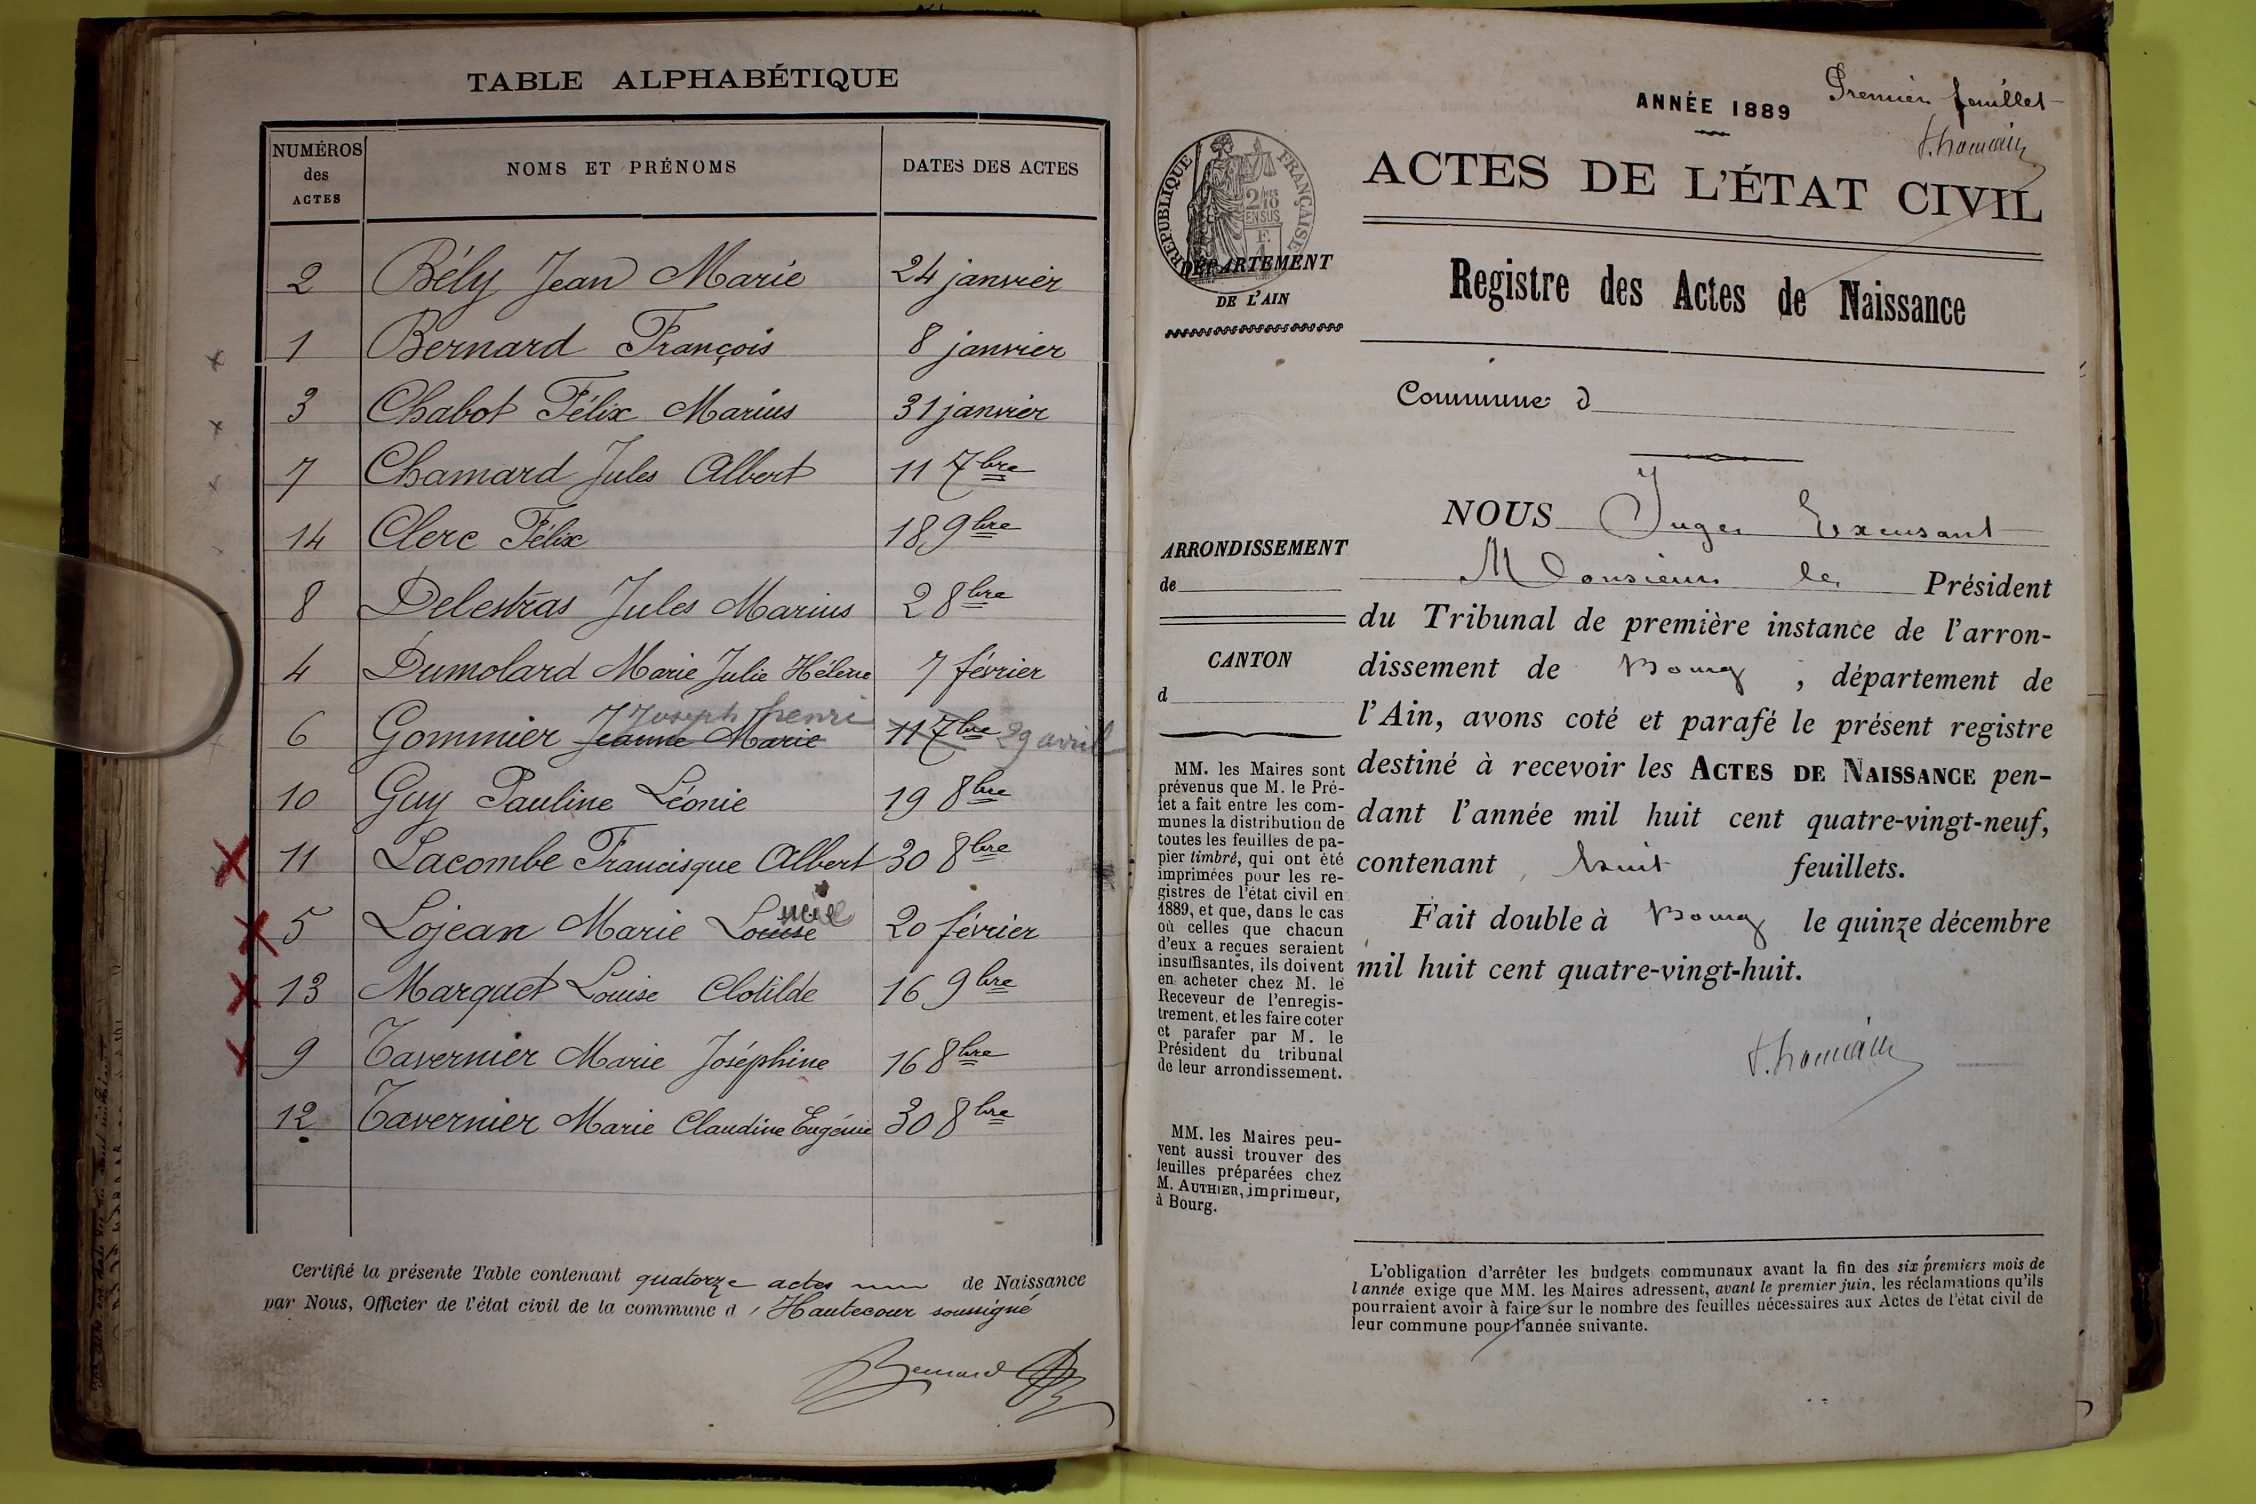 TABLE ALPHABÉTIQUE
NUMÉROS des ACTES NOMS ET PRÉNOMS DATES DES ACTES
2 Bély Jean Marie 24 janvier
1 Bernard François 8 janvier
3 Chabot Félix Marius 31 janvier
7 Chamard Jules Albert 11 7bre
14 Clerc Félix 18 9bre
8 Delestras Jules Marius 2 8bre
4 Dumolard Marie Julie Hélène 7 février
Joseph henri
6 Gommier Jeanne Marie 11 7bre 29 avril
10 Guy Pauline Léonie 19 8bre
11 Lacombe Francisque Albert 30 8bre
5 Lojean Marie Louise 20 février
13 Marquet Louise Clotilde 16 9bre
9 Tavernier Marie Joséphine 16 8bre
12 Tavernier Marie Claudine Eugénie 30 8bre
Certifié la présente Table contenant quatorze actes de Naissance
par Nous, Officier de l'état civil de la commune d'Hautecour soussigné
Bernard
Premier feuillet
ANNÉE 1889
RÉPUBLIQUE FRANÇAISE
2/10 EN SUS
ACTES DE L'ÉTAT CIVIL
DÉPARTEMENT
DE L'AIN
Registre des Actes de Naissance
Commune d
NOUS Juge Excusant
Monsieur le Président
du Tribunal de première instance de l'arron-
dissement de Bourg, département de
l'Ain, avons coté et parafé le présent registre
destiné à recevoir les ACTES DE NAISSANCE pen-
dant l'année mil huit cent quatre-vingt-neuf,
contenant huit feuillets.
Fait double à Bourg le quinze décembre
mil huit cent quatre-vingt-huit.
ARRONDISSEMENT
de
CANTON
d
MM. les Maires sont
prévenus que M. le Pré-
fet a fait entre les com-
munes la distribution de
toutes les feuilles de pa-
pier timbré, qui ont été
imprimées pour les re-
gistres de l'état civil en
1889, et que, dans le cas
où celles que chacun
d'eux a reçues seraient
insuffisantes, ils doivent
en acheter chez M. le
Receveur de l'enregis-
trement, et les faire coter
et parafer par M. le
Président du tribunal
de leur arrondissement.
MM. les Maires peu-
vent aussi trouver des
feuilles préparées chez
M. AUTHIER, imprimeur,
à Bourg.
L'obligation d'arrêter les budgets communaux avant la fin des six premiers mois de
l'année exige que MM. les Maires adressent, avant le premier juin, les réclamations qu'ils
pourraient avoir à faire sur le nombre des feuilles nécessaires aux Actes de l'état civil de
leur commune pour l'année suivante.